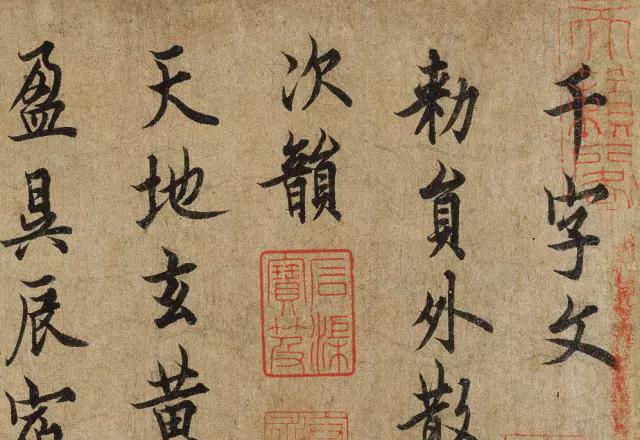 千字文
勅員外散
次韻
石渠
寶笈
天地玄黄
盈昃辰宿